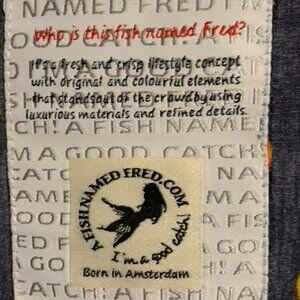 NAMED FRED! I'M
Who is this fish named Fred?
GOOD CATCH! A
It's a fresh and crisp lifestyle concept
with original and colourful elements
that stands out of the crowd by using
luxurious materials and refined details.
CH! A FISH NAMED
A GOOD CATCH!
A FISH NAMED FRED.COM
I'm a good catch!
Born in Amsterdam